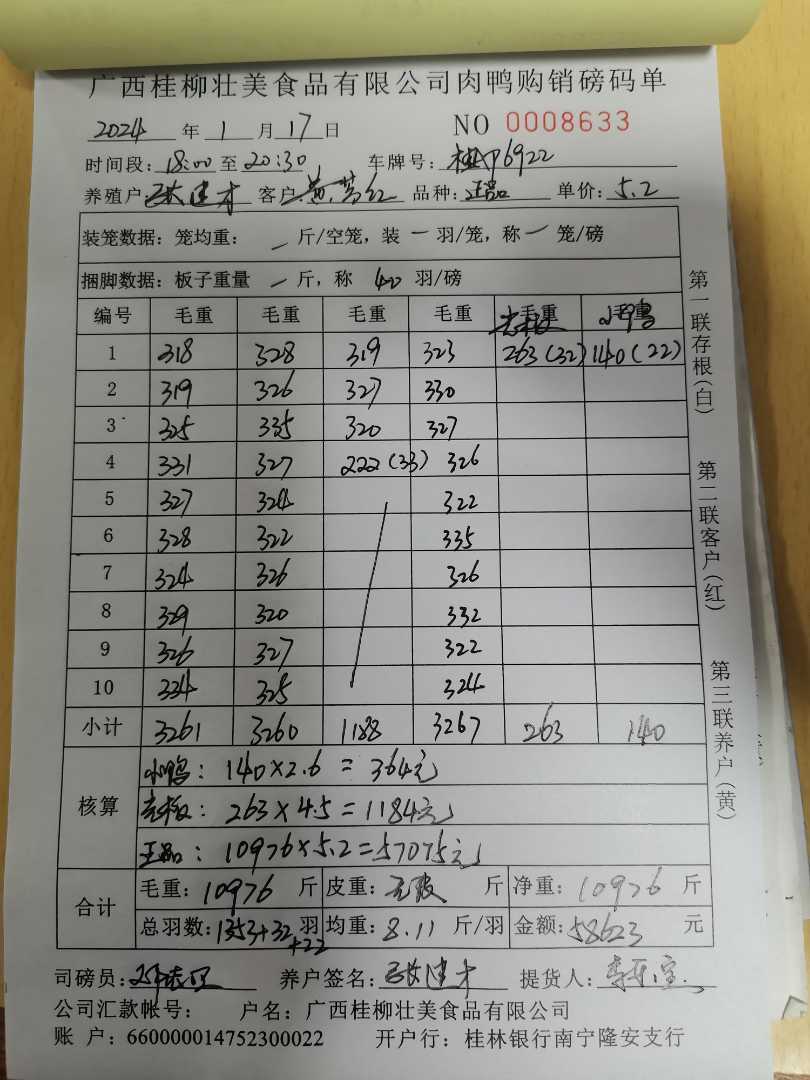 广西桂柳壮美食品有限公司肉鸭购销磅码单
2024 年 1 月 17 日 NO 0008633
时间段: 18:00 至 20:30 车牌号: 桂 6922
养殖户 建才 客户: 黄 红 品种: 正品 单价: 5.2
装笼数据: 笼均重: — 斤/空笼, 装 — 羽/笼, 称 — 笼/磅
捆脚数据: 板子重量 — 斤, 称 40 羽/磅
编号 毛重 毛重 毛重 毛重 毛重 毛重
小鸭
1 318 328 319 323 263(32) 140(22)
2 319 326 327 330
3 325 335 320 327
4 331 327 222(33) 326
5 327 324 322
6 328 322 335
7 324 326 326
8 329 320 332
9 326 327 322
10 334 325 324
小计 3261 3260 1188 3267 263 140
核算
小鸭: 140×2.6=364元
263×4.5=1184元
正品: 10976×5.2=57075元
合计
毛重: 10976 斤 皮重: 斤 净重: 10976 斤
总羽数: 1353+32+22 羽 均重: 8.11 斤/羽 金额: 58623 元
司磅员: 养户签名: 建才 提货人: 李
公司汇款帐号: 户名: 广西桂柳壮美食品有限公司
账 户: 660000014752300022 开户行: 桂林银行南宁隆安支行
第一联存根(白)
第二联客户(红)
第三联养户(黄)